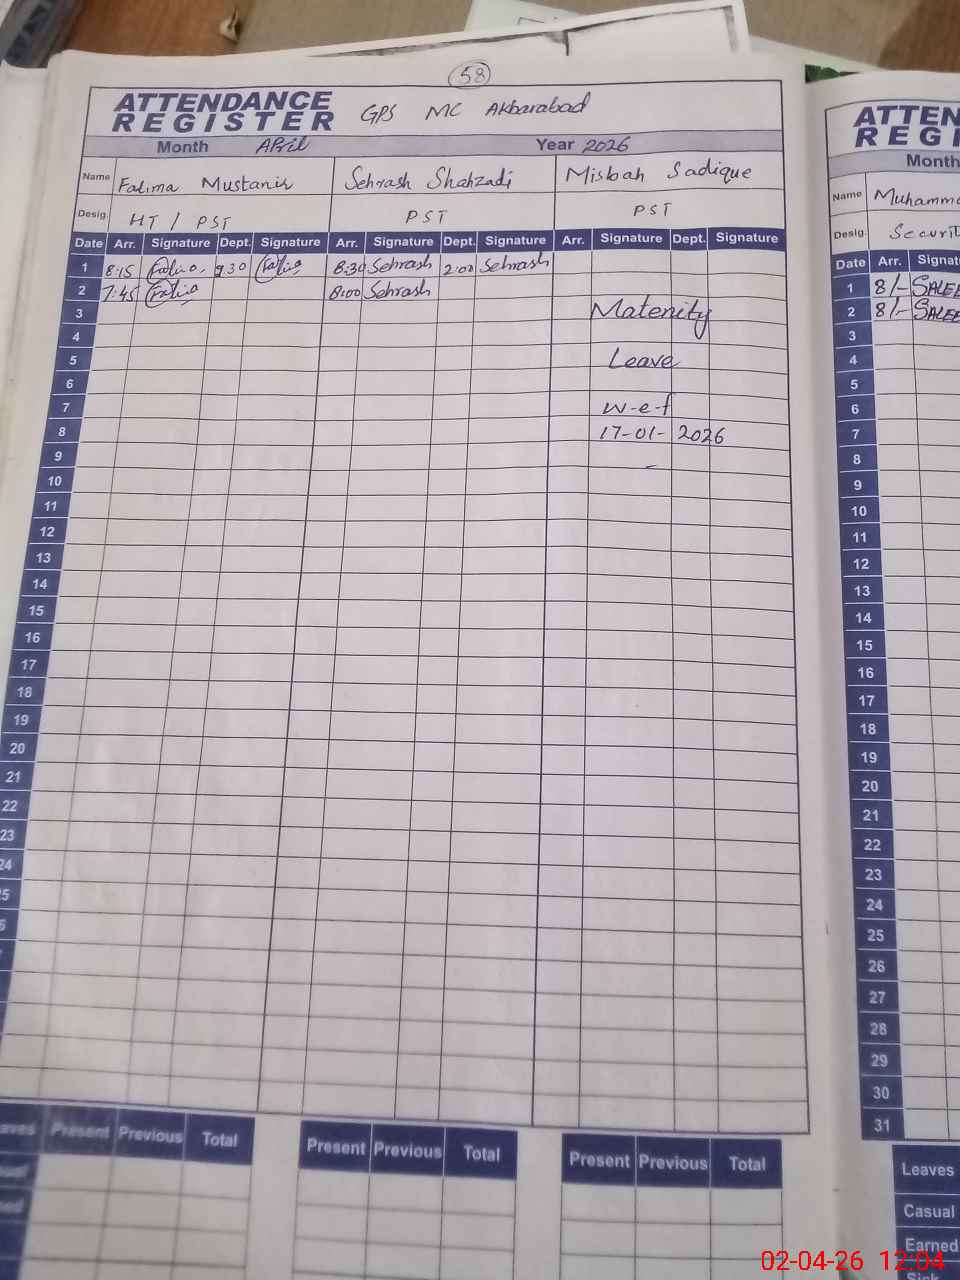 58
ATTENDANCE REGISTER GPS MC Akbarabad
Month April Year 2026
Name Fatima Mustanir Sehrash Shahzadi Misbah Sadique
Desig. HT / PST PST PST
Date Arr. Signature Dept. Signature Arr. Signature Dept. Signature Arr. Signature Dept. Signature
1 8:15 Fatima 9:30 Fatima 8:30 Sehrash 2:00 Sehrash
2 7:45 Fatima 8:00 Sehrash
3 Matenity
4
5 Leave
6
7 w-e-f
8 17-01-2026
9
10
11
12
13
14
15
16
17
18
19
20
21
22
23
24
Present Previous Total Present Previous Total Present Previous Total
ATTEN
REGI
Month
Name Muhamma
Desig. Securit
Date Arr. Signat
1 8/- SALEE
2 8/- SALEE
3
4
5
6
7
8
9
10
11
12
13
14
15
16
17
18
19
20
21
22
23
24
25
26
27
28
29
30
31
Leaves
Casual
Earned
Sick
02-04-26 12:04